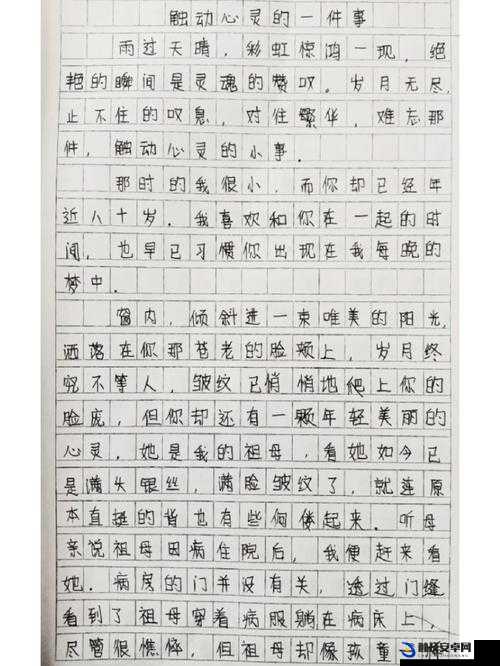 触动心灵的一件事
雨过天晴，彩虹惊鸿一现，绝
艳的瞬间是灵魂的赞叹。岁月无尽，
止不住的叹息，对住繁华，难忘那
件，触动心灵的小事．
那时的我很小，而你却已经年
近八十岁．我喜欢和你在一起的时
间，也早已习惯你出现在我每晚的
梦中．
窗内，倾斜进一束唯美的阳光，
洒落在你那苍老的脸颊上，岁月终
究不等人，皱纹已悄悄地爬上你的
脸庞，但你却还有一颗年轻美丽的
心灵，她是我的祖母，看她如今已
是满头银丝，满脸皱纹了，就连原
本直挺的背也有些佝偻起来．听母
亲说祖母因病住院后，我便赶来看
她．病房的门并没有关，透过门缝
看到了祖母穿着病服躺在病床上，
尽管很憔悴，但祖母却像孩童一